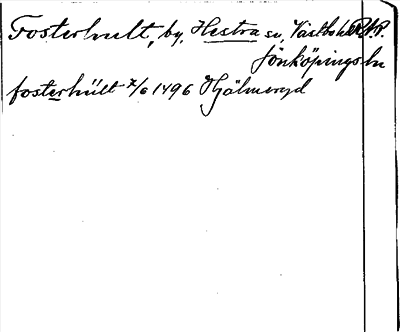 Fosterhult, by, Hestra sn, Västbo hd
Jönköpings ln
fosterhult 7/6 1496 Hjälmeryd